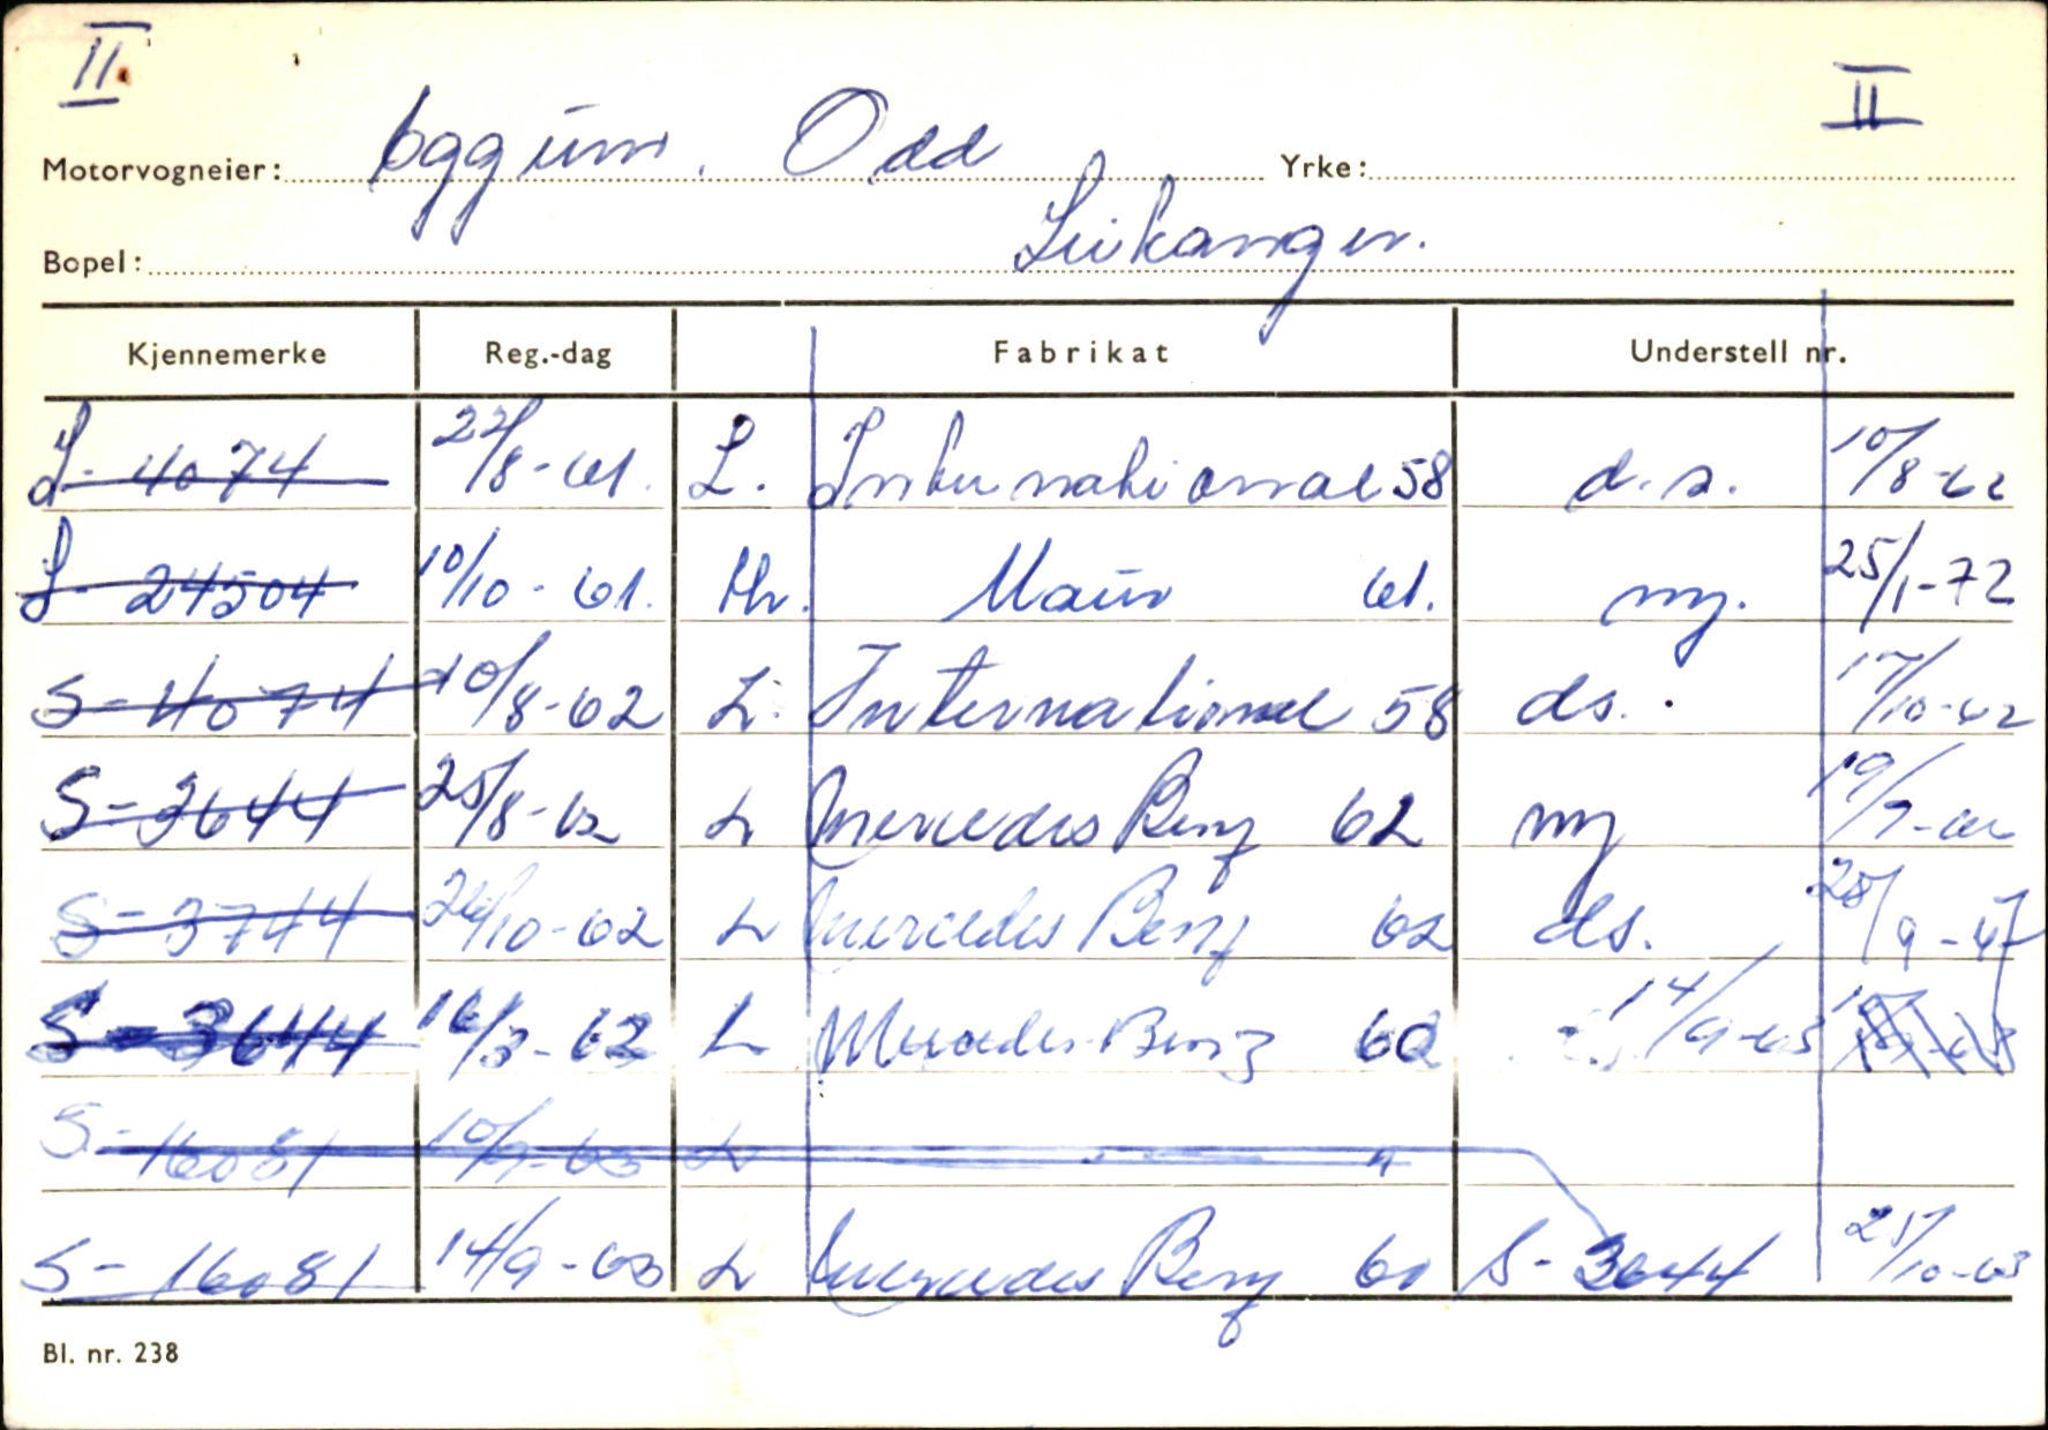 II. II
Motorvogneier: Eggum. Odd Yrke:
Bopel: Leikanger.
Kjennemerke Reg.-dag Fabrikat Understell nr.
S- 4074 22/8-61. L. International 58 d.s. 10/8-62
S- 24504 10/10-61. Hv. 61. ny. 25/1-72
S-4074 10/8-62 L. International 58 ds. 17/10-62
S-3644 25/8-62 L Mercedes Benz 62 ny
S-3744 26/10-62 L Mercedes Benz 62 ds.
S-3644 L Mercedes-Benz 14/9-63
S-16081 10/9-63 L "
S-16081 14/9-63 L Mercedes Benz S-3644 25/10-63
Bl. nr. 238